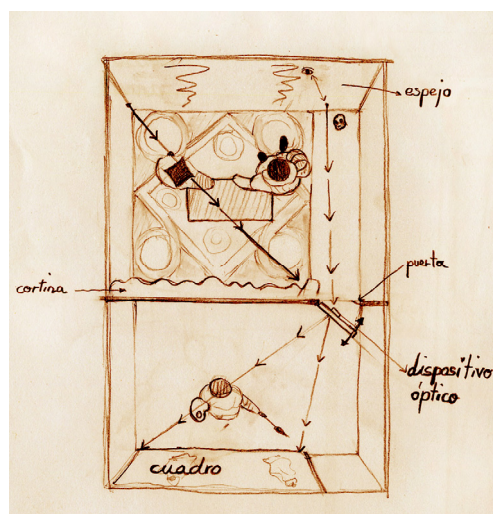 espejo
puerta
cortina
dispositivo
óptico
cuadro